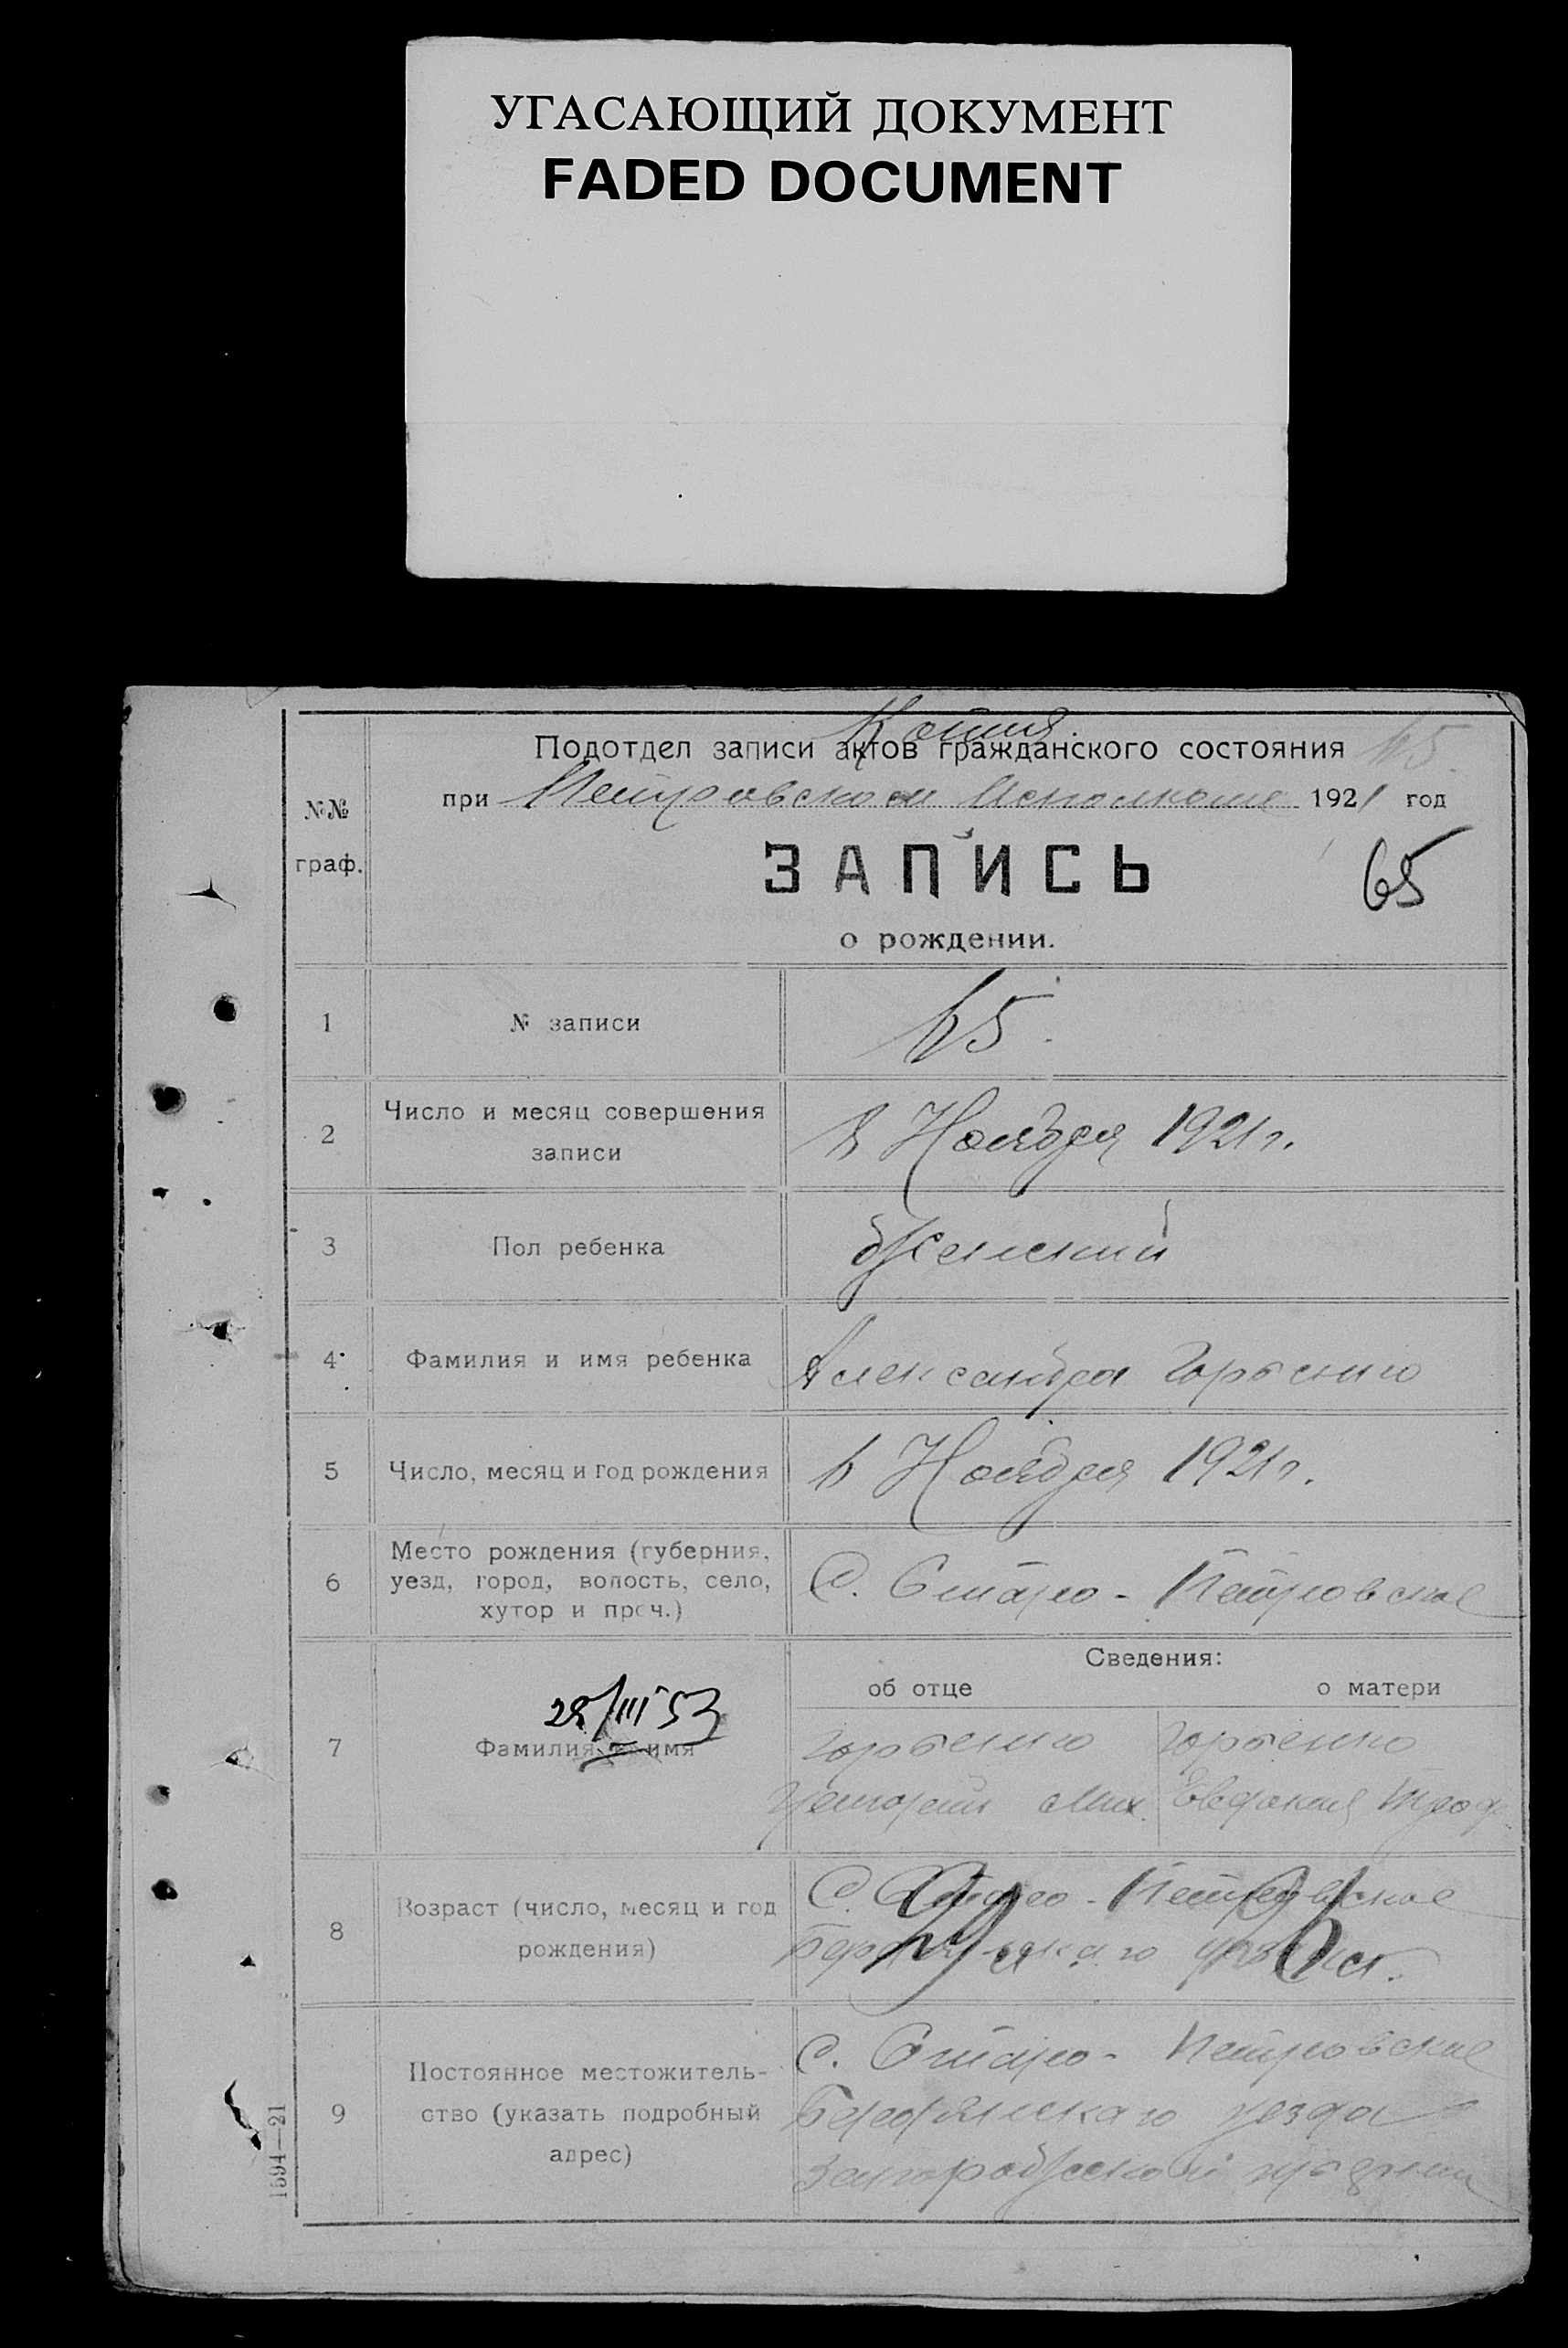 УГАСАЮЩИЙ ДОКУМЕНТ
FADED DOCUMENT
Копия.
Подотдел записи актов гражданского состояния 65
при Петровском Исполкоме 1921 год
№№
граф.
ЗАПИСЬ
65
о рождении.
1 № записи 65.
2 Число и месяц совершения
записи
8 Ноября 1921 г.
3 Пол ребенка Женский
4 Фамилия и имя ребенка Александра Горбенко
5 Число, месяц и год рождения 6 Ноября 1921 г.
6 Место рождения (губерния,
уезд, город, волость, село,
хутор и проч.)
С. Старо-Петровское
Сведения:
об отце о матери
7 Фамилия и имя
28/III 53
Горбенко Горбенко
Григорий Мих. Евдокия Троф.
8 Возраст (число, месяц и год
рождения)
С. Старо-Петровское
Бердянскаго уезда.
9 Постоянное местожитель-
ство (указать подробный
адрес)
С. Старо-Петровское
Бердянскаго уезда
Запорожской губернии
1694—21